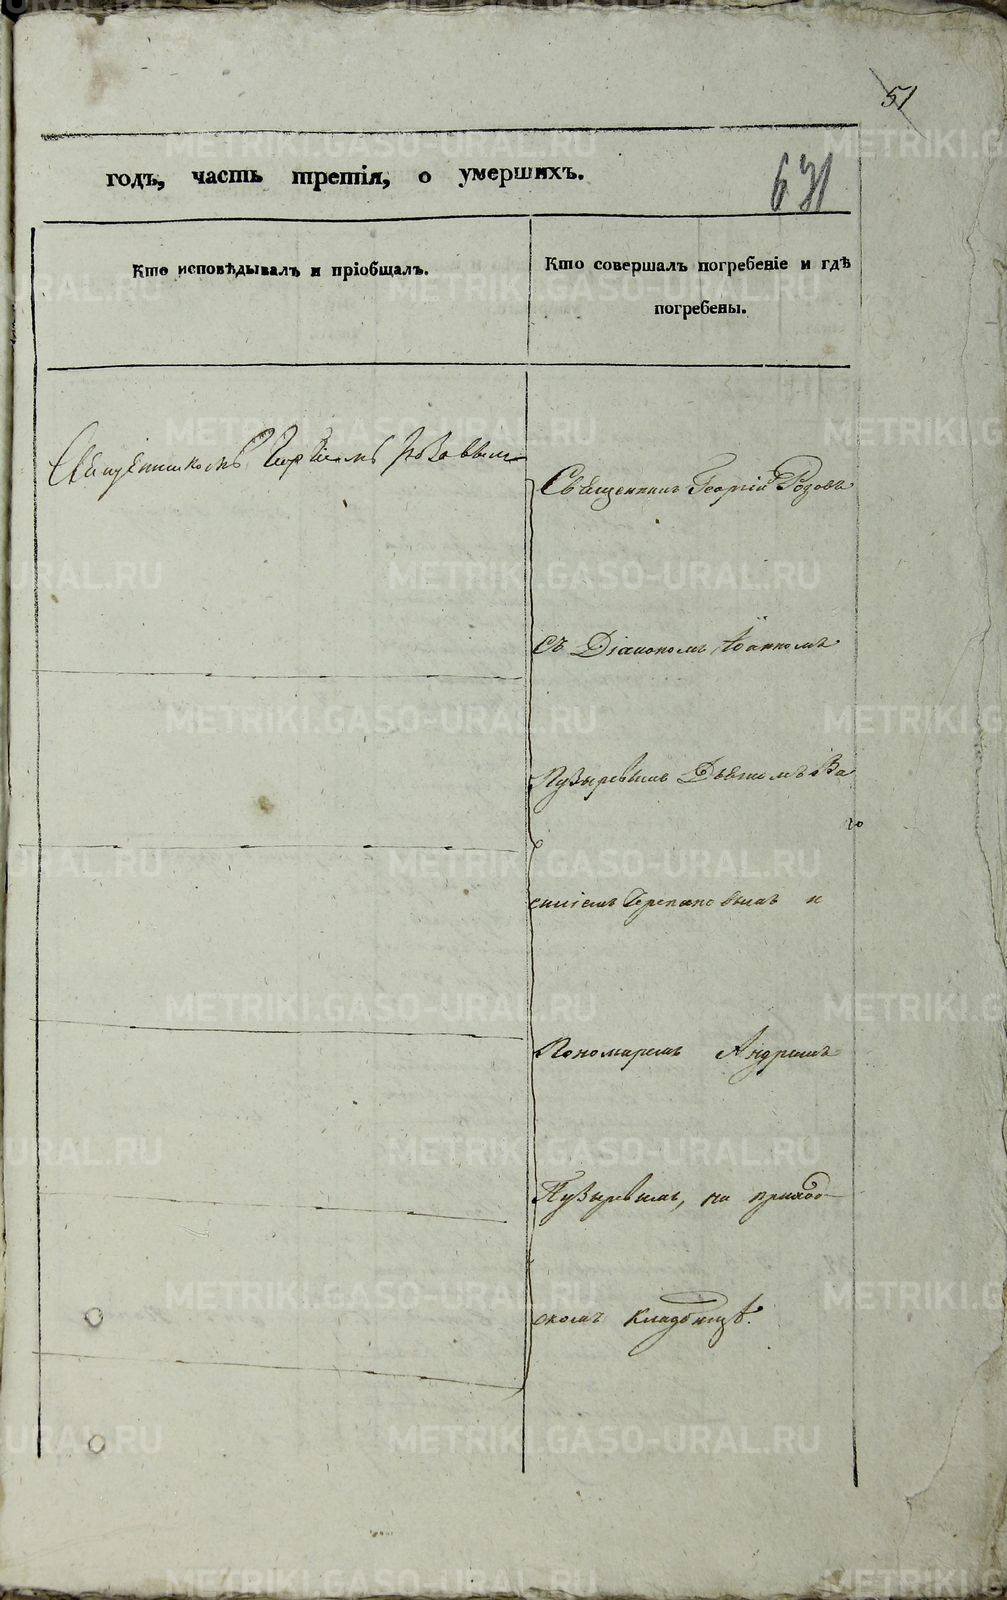 51
годъ, часть третія, о умершихъ.
631
Кто исповѣдывалъ и пріобщалъ.
Кто совершалъ погребеніе и гдѣ
погребены.
Священникомъ Георгіемъ Розовымъ
Священникъ Георгій Розовъ
съ Діакономъ Іоанномъ
Пузыревымъ Дьячкомъ Ва
го
силіемъ Черепановымъ и
Пономаремъ Андреемъ
Пузыревымъ, на приход
скомъ кладбищѣ.
METRIKI.GASO-URAL.RU